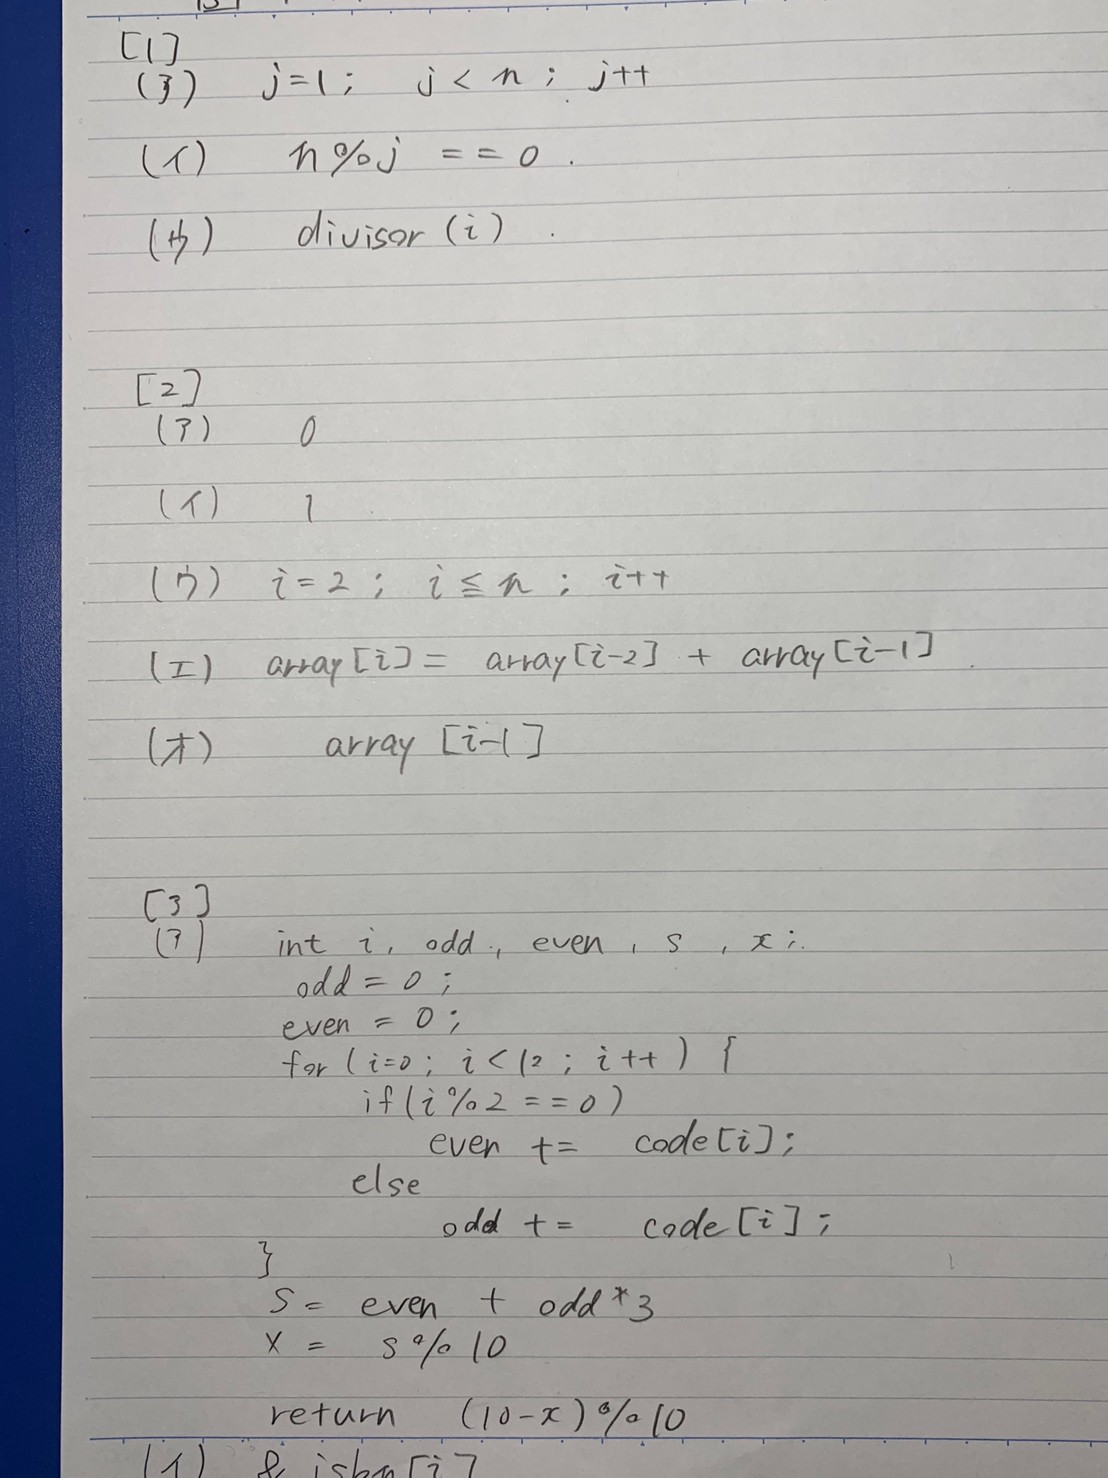 [1]
(ア) j=1; j<n; j++
(イ) n%j ==0.
(ウ) divisor(i).
[2]
(ア) 0
(イ) 1
(ウ) i=2; i≦n; i++
(エ) array[i]= array[i-2] + array[i-1]
(オ) array [i-1]
[3]
(ア) int i, odd, even, s, x;
odd = 0;
even = 0;
for (i=0; i<12; i++) {
if(i%2 ==0)
even += code[i];
else
odd += code[i];
}
S= even + odd*3
x = s%10
return (10-x)%10
(イ) & isbn[i]